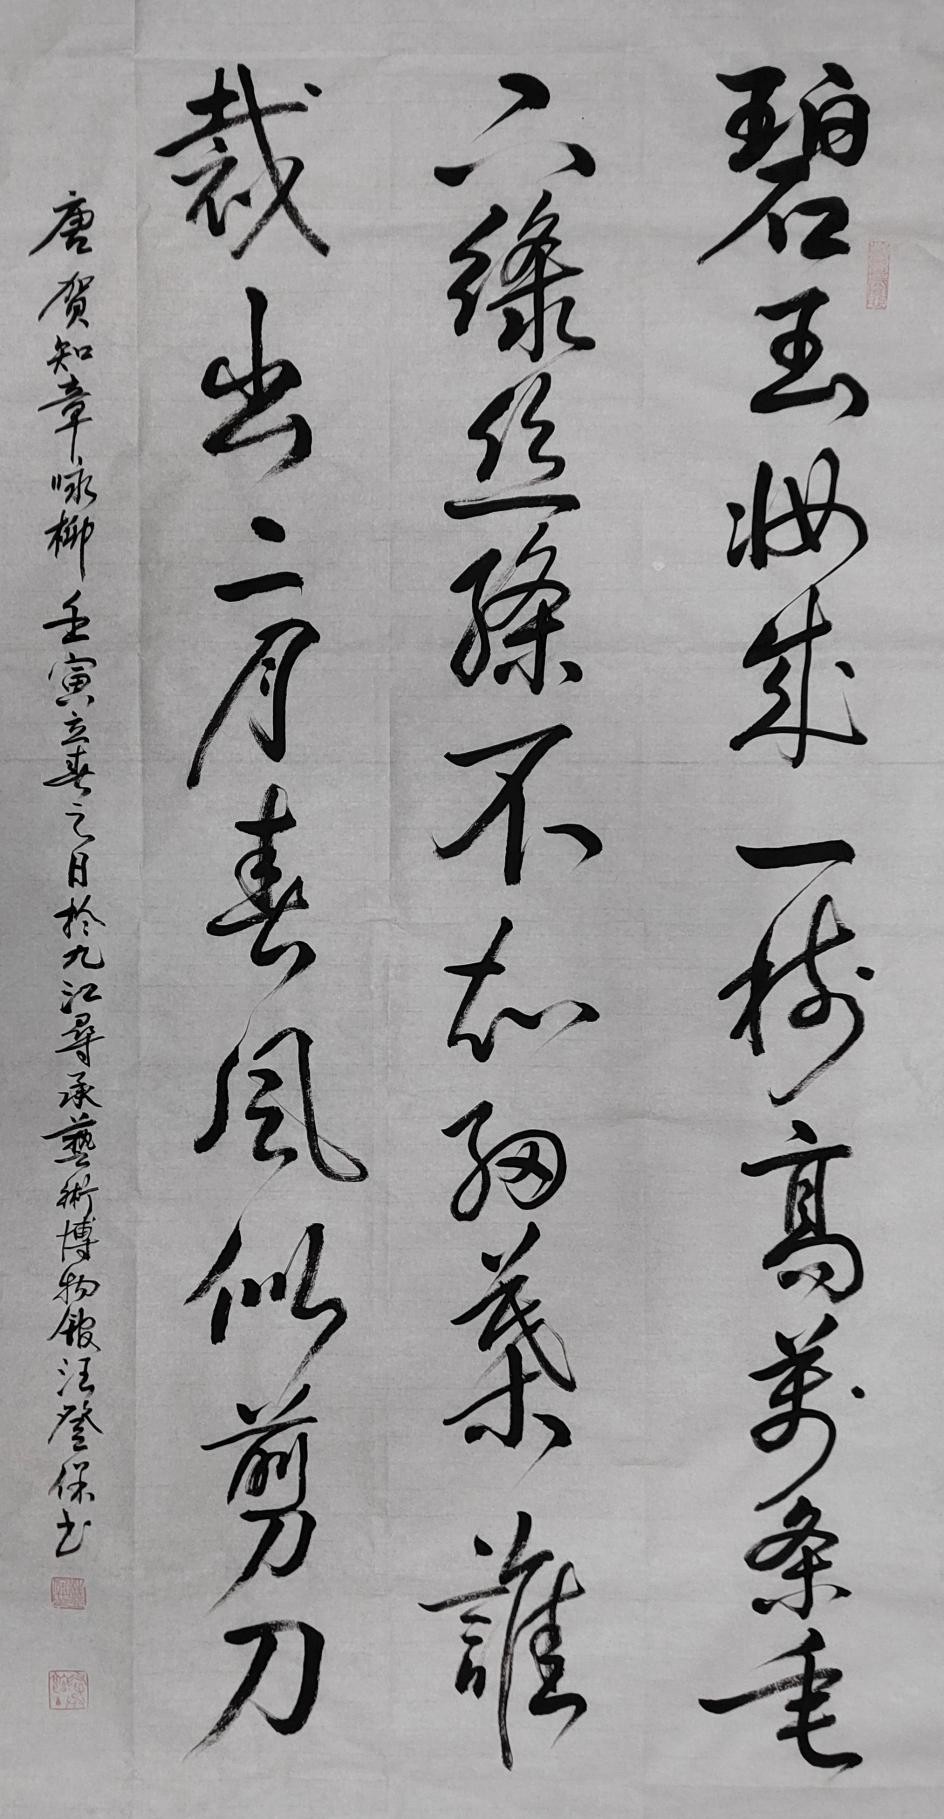 碧玉妝成一樹高萬条垂
下綠丝絛不知細葉誰
裁出二月春風似剪刀
唐賀知章咏柳壬寅立春之日於九江尋承藝術博物館汪登保书